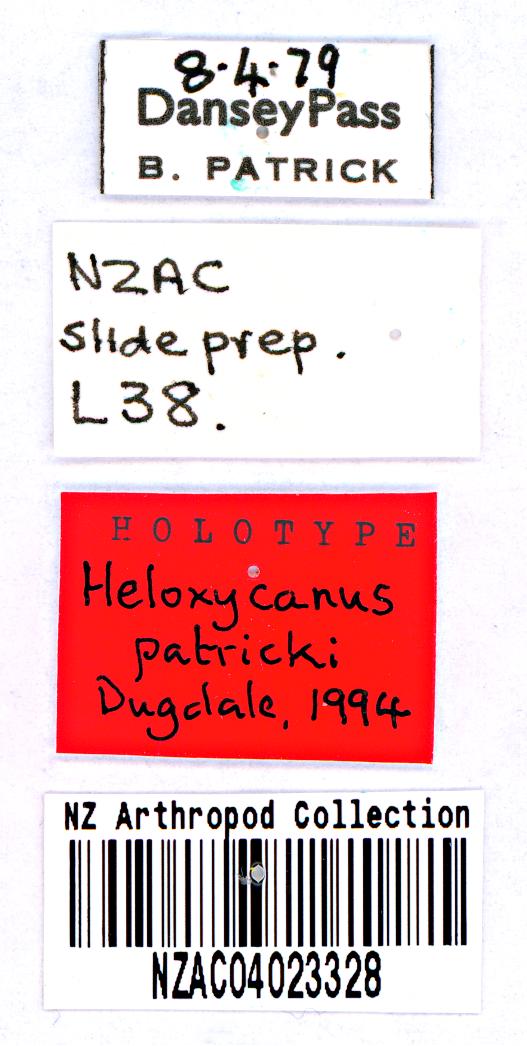 8.4.79
Dansey Pass
B. PATRICK
NZAC
slide prep.
L38.
HOLOTYPE
Heloxycanus
patricki
Dugdale, 1994
NZ Arthropod Collection
NZAC04023328